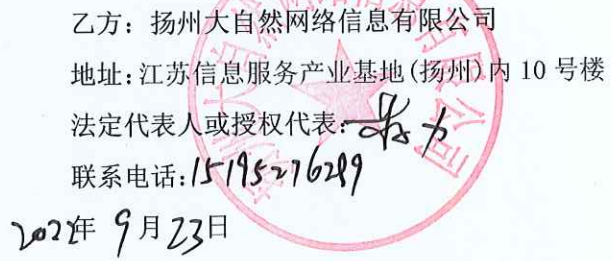 乙方：扬州大自然网络信息有限公司
地址:江苏信息服务产业基地(扬州)内10号楼
法定代表人或授权代表:
联系电话:15195276289
2022年9月23日
扬州大自然网络信息有限公司